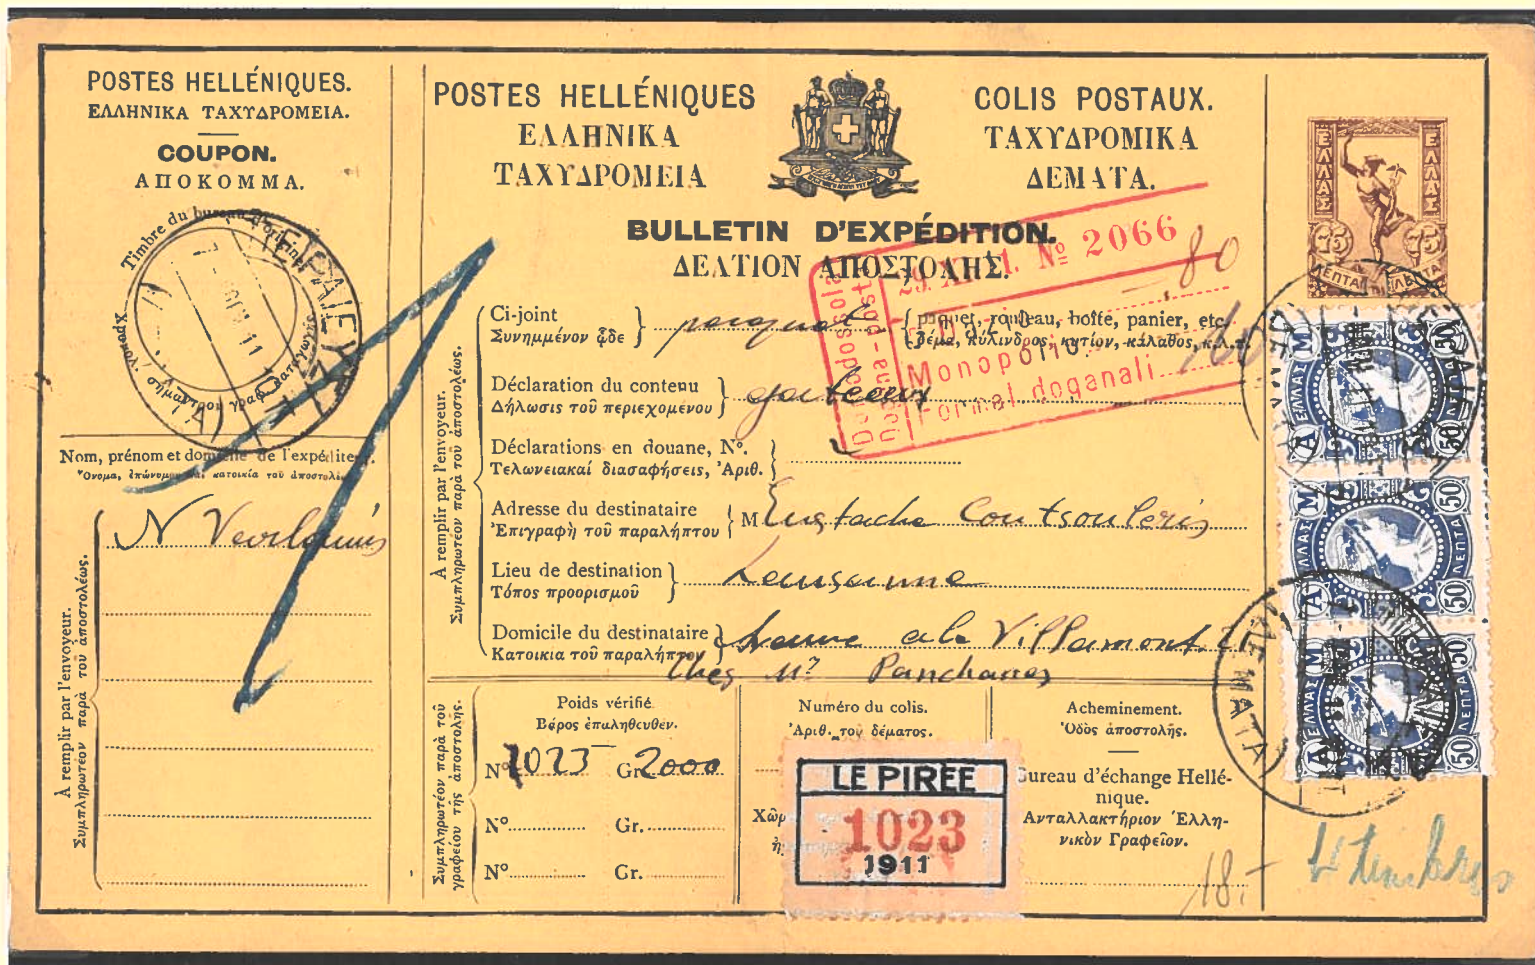 POSTES HELLÉNIQUES.
ΕΛΛΗΝΙΚΑ ΤΑΧΥΔΡΟΜΕΙΑ.
COUPON.
ΑΠΟΚΟΜΜΑ.
Timbre du bureau d'origine
ΠΕΙΡΑΙΕΥΣ
11
Nom, prénom et domicile de l'expéditeur.
Ὄνομα, ἐπώνυμον καὶ κατοικία τοῦ ἀποστολέως
À remplir par l'envoyeur.
Συμπληρωτέον παρὰ τοῦ ἀποστολέως.
N
POSTES HELLÉNIQUES
ΕΛΛΗΝΙΚΑ
ΤΑΧΥΔΡΟΜΕΙΑ
COLIS POSTAUX.
ΤΑΧΥΔΡΟΜΙΚΑ
ΔΕΜΑΤΑ.
BULLETIN D'EXPÉDITION.
ΔΕΛΤΙΟΝ ΑΠΟΣΤΟΛΗΣ.
29. XI. 11. Nº 2066
Domodossola
Dogana-posta
Monopolio
Formal doganali
80
À remplir par l'envoyeur.
Συμπληρωτέον παρὰ τοῦ ἀποστολέως.
Ci-joint
Συνημμένον ᾧδε
paquet, rouleau, boîte, panier, etc.
δέμα, κύλινδρος, κυτίον, κάλαθος, κ.λ.π.
Déclaration du contenu
Δήλωσις τοῦ περιεχομένου
gateaux
Déclarations en douane, Nº.
Τελωνειακαί διασαφήσεις, Ἀριθ.
Adresse du destinataire
Ἐπιγραφὴ τοῦ παραλήπτου
M Eustache Coutsouleris
Lieu de destination
Τόπος προορισμοῦ
Lausanne
Domicile du destinataire
Κατοικια τοῦ παραλήπτου
Villamont
Chez Mr
Συμπληρωτέον παρὰ τοῦ
γραφείου τῆς ἀποστολῆς.
Poids vérifié.
Βάρος ἐπαληθευθέν.
Nº 1023 Gr. 2000
Nº Gr.
Nº Gr.
Numéro du colis.
Ἀριθ. τοῦ δέματος.
LE PIRÉE
1023
1911
Acheminement.
Ὁδὸς ἀποστολῆς.
Bureau d'échange Hellénique.
Ανταλλακτήριον Ἑλληνικὸν Γραφεῖον.
18.-
ΕΛΛΑΣ ΕΛΛΑΣ
75 75
ΛΕΠΤΑ ΛΕΠΤΑ
ΕΛΛΑΣ Μ 50
Α ΛΕΠΤΑ 50
ΕΛΛΑΣ Μ 50
Α ΛΕΠΤΑ 50
ΕΛΛΑΣ Μ 50
Α ΛΕΠΤΑ 50
ΔΕΜΑΤΑ